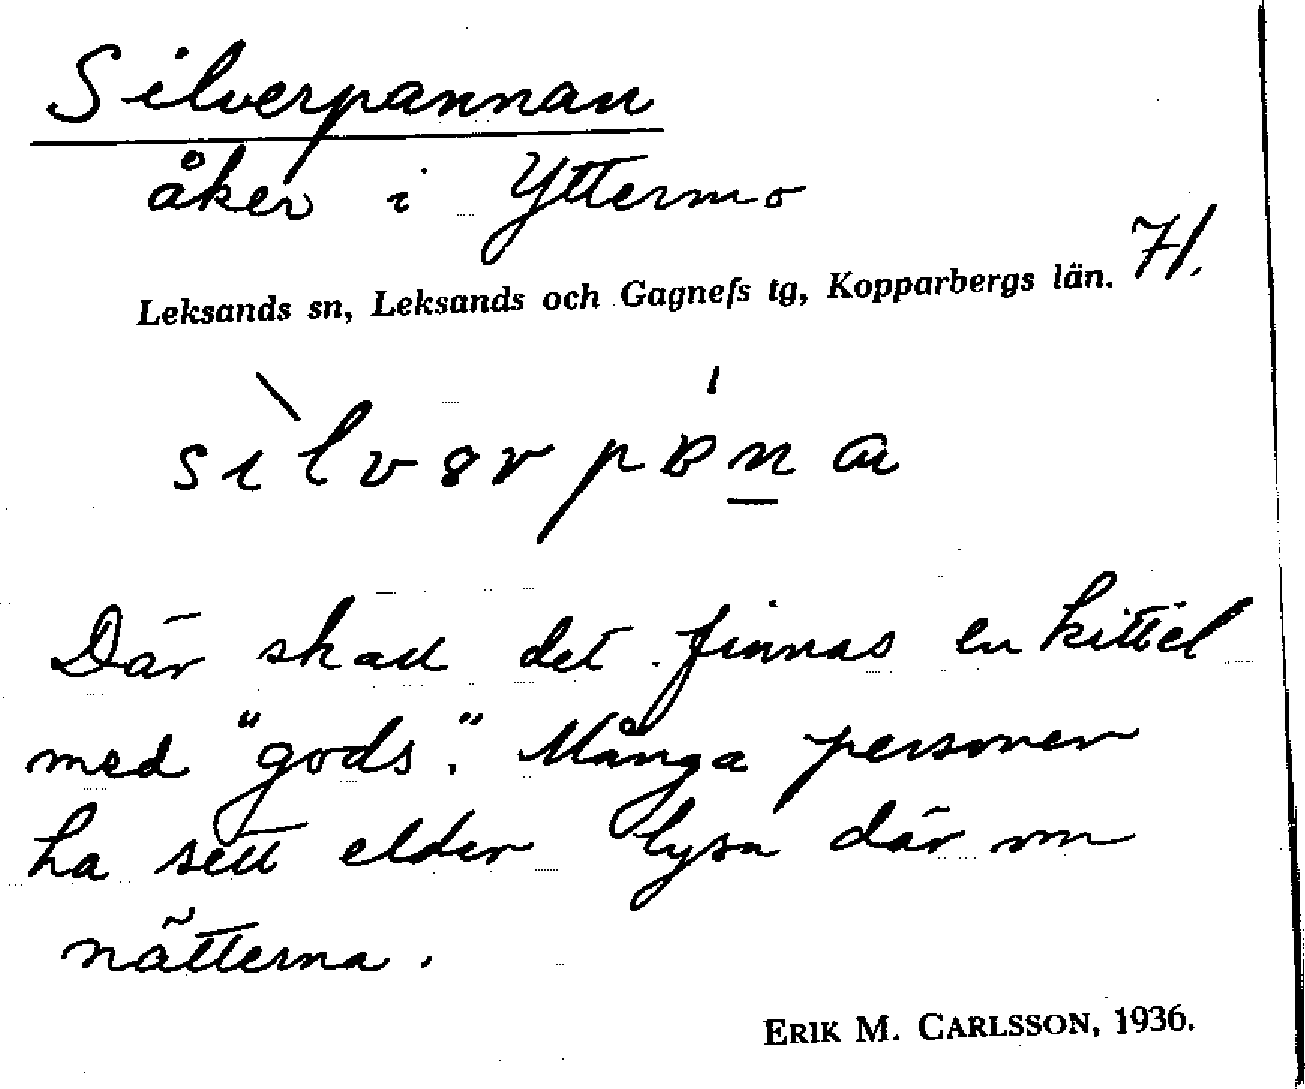 Silverpannan
åker i Yttermo
Leksands sn, Leksands och Gagnefs tg, Kopparbergs län. 71.
Där skall det finnas en kittel
med "gods". Många personer
ha sett elden lysa där om
nätterna.
ERIK M. CARLSSON, 1936.